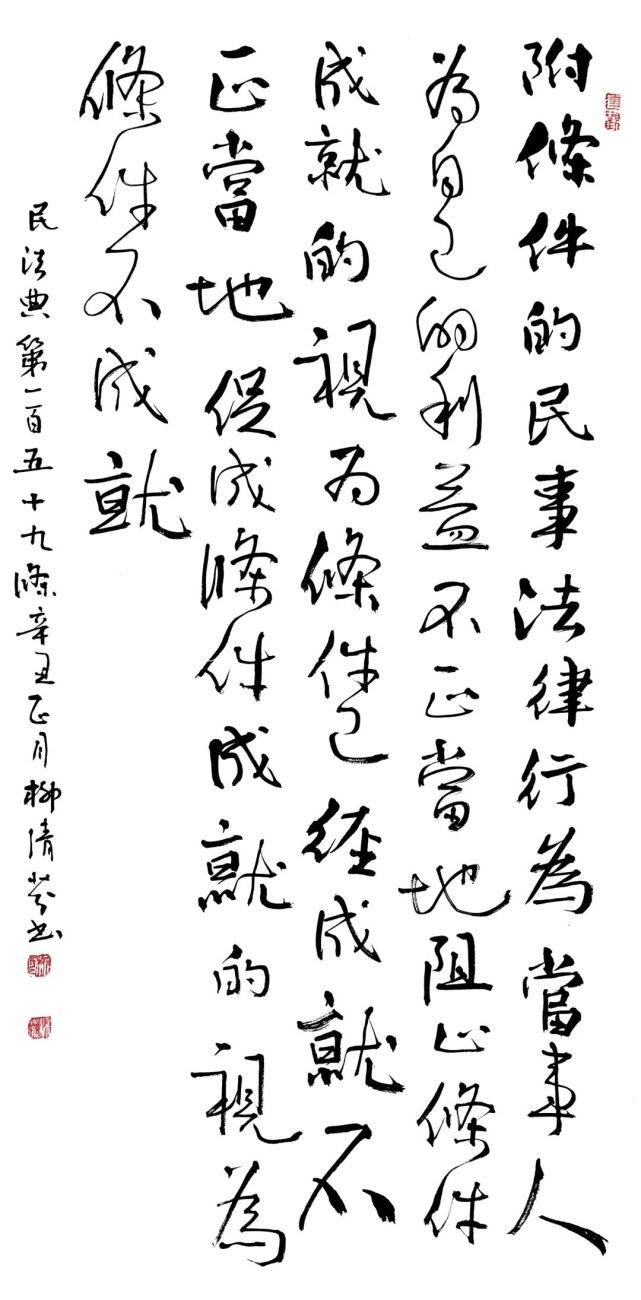 附條件的民事法律行為當事人
為自己的利益不正當地阻止條件
成就的視为條件已經成就不
正當地促成條件成就的視為
條件不成就
民法典第一百五十九條辛丑正月柳清芬书